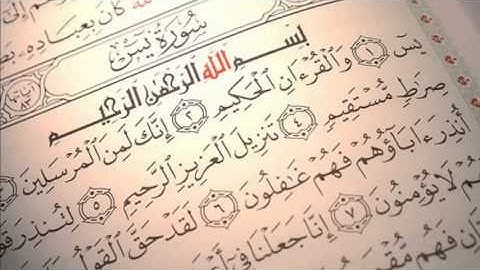 ٱللَّهَ كَانَ بِعِبَادِهِۦ
سُورَةُ يسٓ
بِسْمِ ٱللَّهِ ٱلرَّحْمَٰنِ ٱلرَّحِيمِ
يسٓ ١ وَٱلْقُرْءَانِ ٱلْحَكِيمِ ٢ إِنَّكَ لَمِنَ ٱلْمُرْسَلِينَ
صِرَٰطٍ مُّسْتَقِيمٍ ٤ تَنزِيلَ ٱلْعَزِيزِ ٱلرَّحِيمِ ٥ لِتُنذِرَ
أُنذِرَ ءَابَآؤُهُمْ فَهُمْ غَٰفِلُونَ ٦ لَقَدْ حَقَّ ٱلْقَوْلُ
لَا يُؤْمِنُونَ ٧ إِنَّا جَعَلْنَا فِىٓ
فَهُم